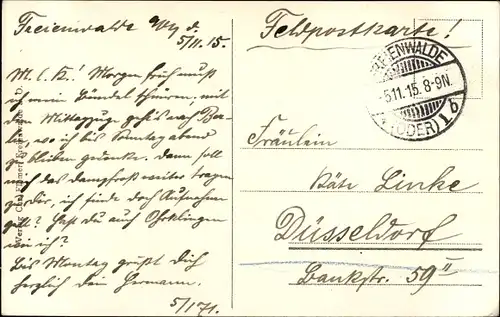 Freienwalde a/O d.
5/11. 15.
M. l. K.! Morgen früh muß
ich mein Bündel schnüren, mit
dem Mittagzug geht's nach Ber-
lin, wo ich bis Sonntag abend
zu bleiben gedenke. Dann soll
mich das Dampfroß weiter tragen
zu Dir, ich finde doch Aufnahme
Hast Du auch
Bis Montag grüßt Dich
herzlich Dein Hermann.
5/171.
Feldpostkarte!
FREIENWALDE
5.11.15. 8-9N.
(ODER) 1b
Fräulein
Käte Linke
Düsseldorf
Bankstr. 59 II